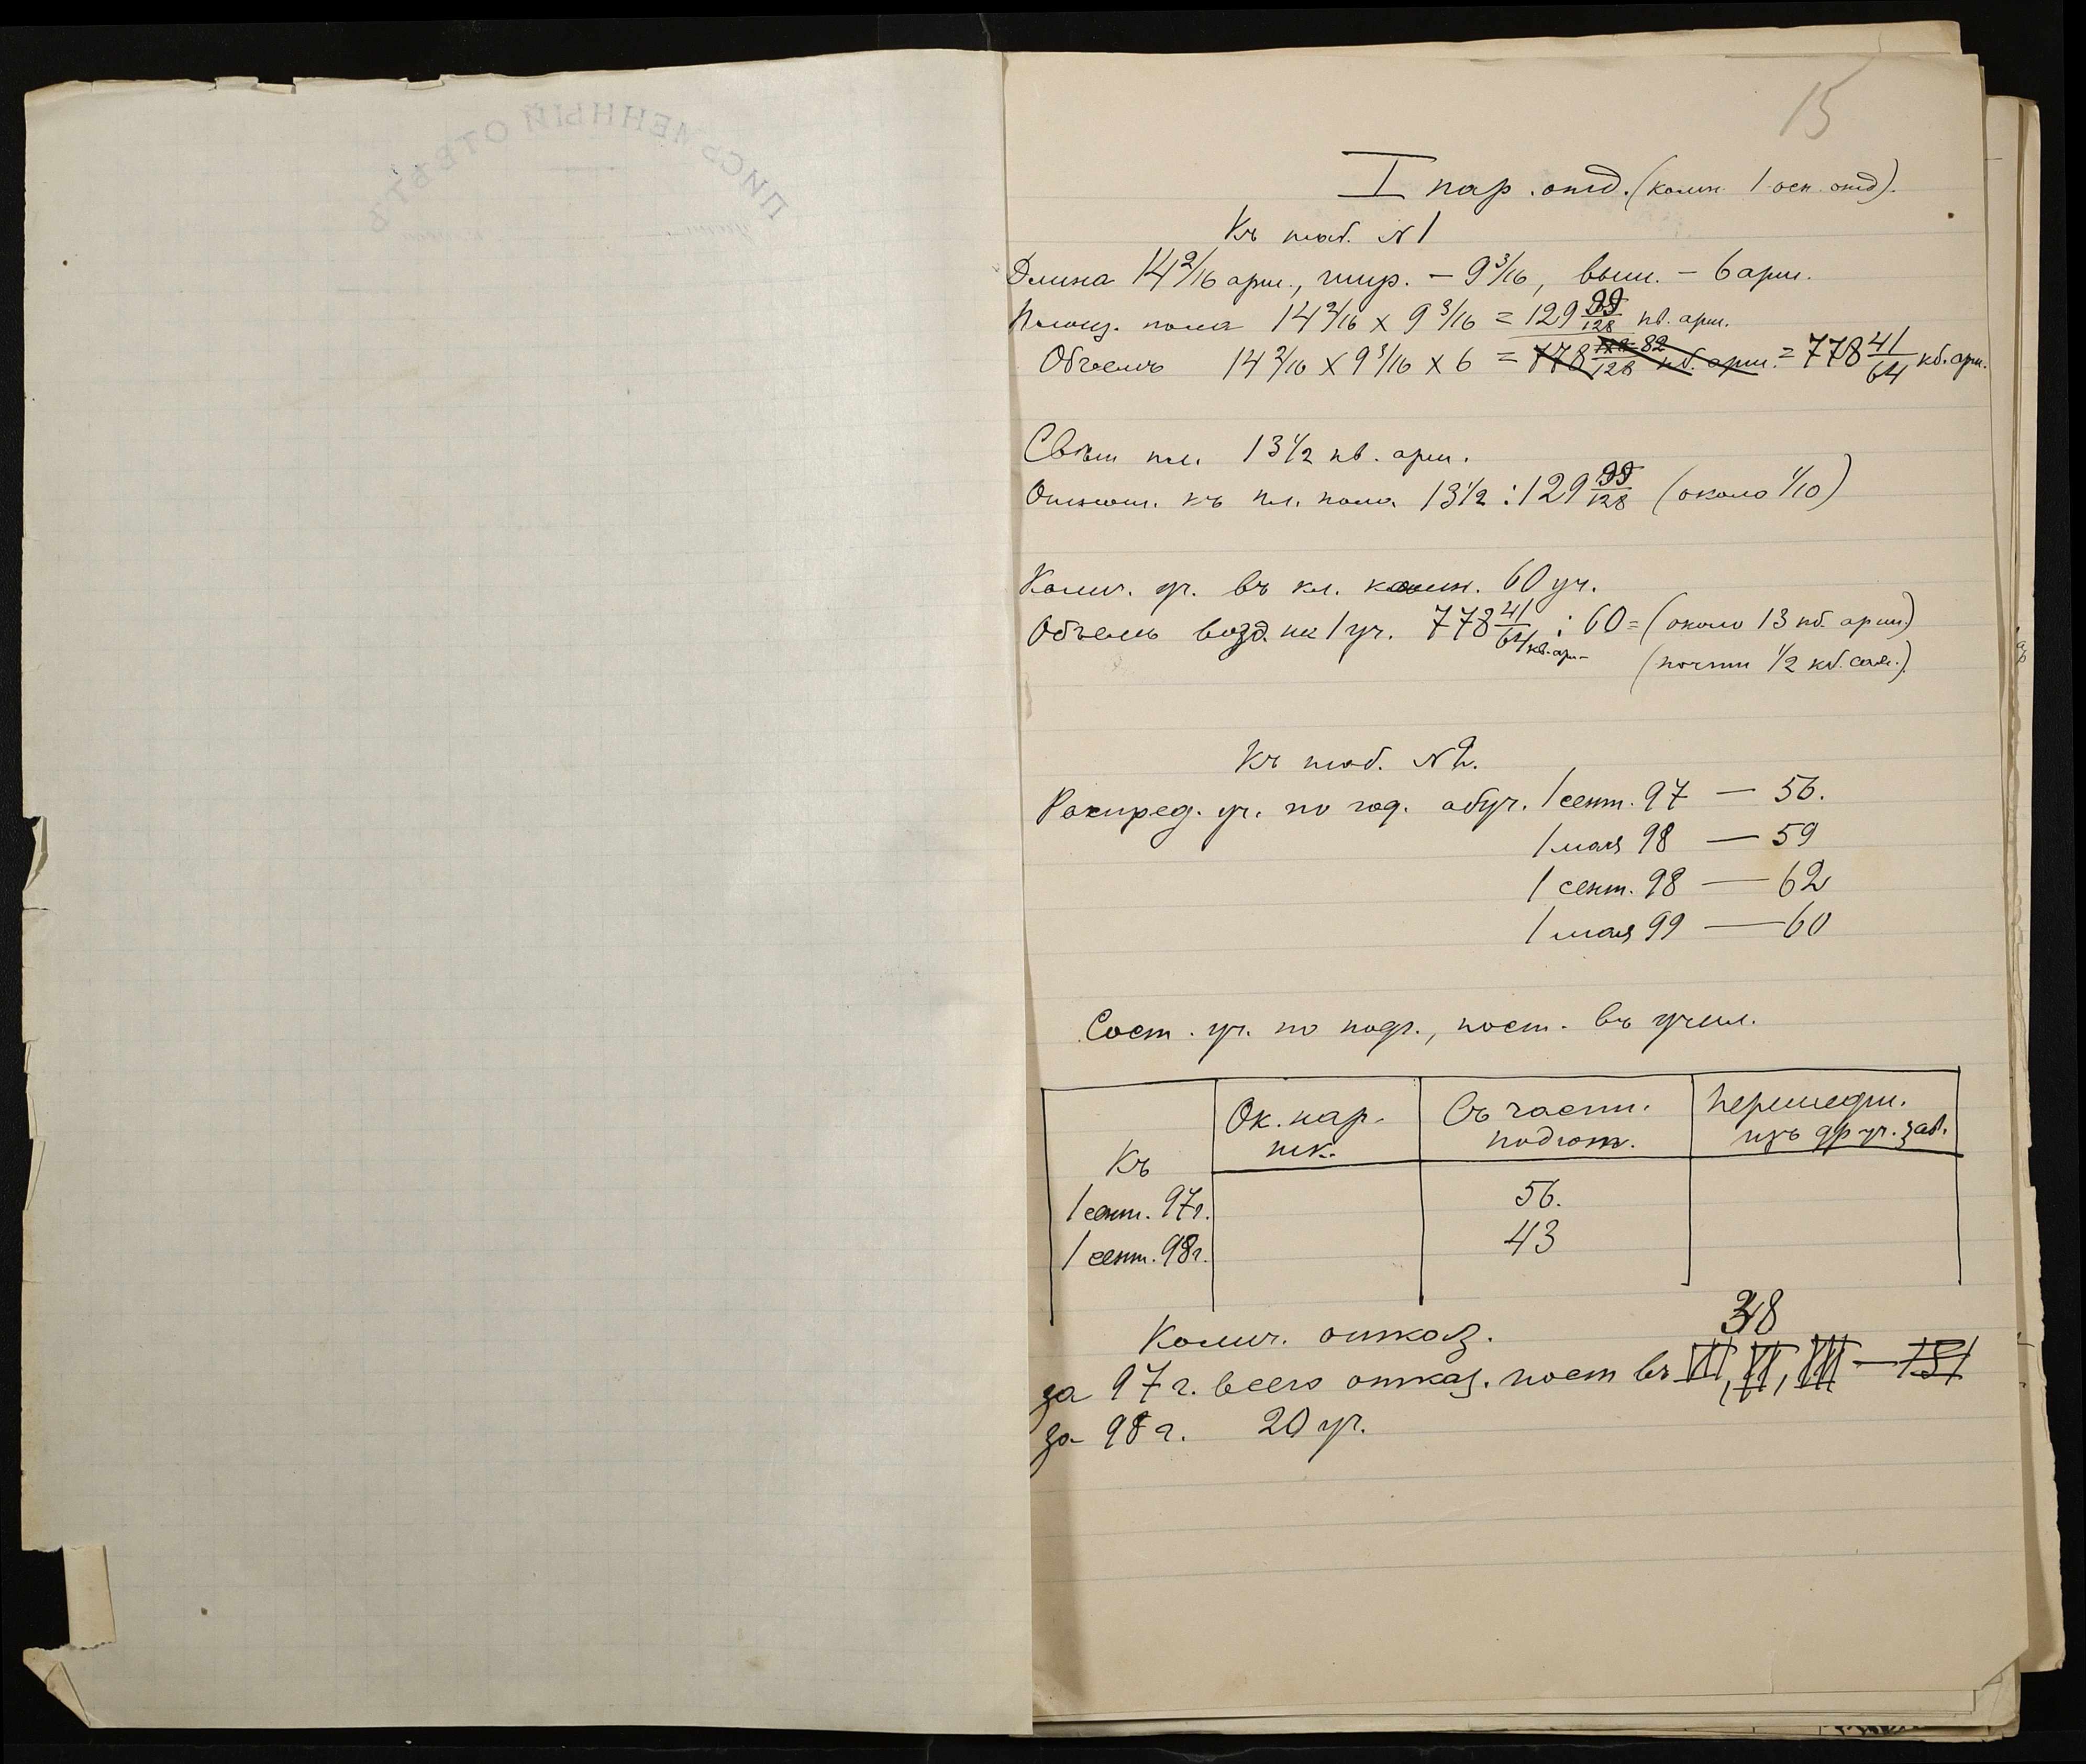 ПИСЬМЕННЫЙ ОТВѢТЪ
15
I пар. отд. (комн. 1 осн. отд).
Къ таб. № 1
Длина 14 2/16 арш., шир. – 9 3/16, выш. – 6 арш.
Площ. пола 14 2/16 x 9 3/16 = 129 99/128 кв. арш.
Объемъ 14 2/16 x 9 3/16 x 6 = 778 82/128 кб. арш. = 778 41/64 кб. арш.
Свѣт. пл. 13 1/2 кв. арш.
Отнош. къ пл. пола 13 1/2 : 129 99/128 (около 1/10)
Колич. уч. въ кл. комн. 60 уч.
Объемъ возд. на 1 уч. 778 41/64 кб. арш. : 60 = (около 13 кб. арш.)
(почти 1/2 кб. саж.)
Къ таб. № 2.
Распред. уч. по год. обуч. 1 сент. 97 — 56.
1 мая 98 — 59
1 сент. 98 — 62
1 мая 99 — 60
Сост. уч. по подг., пост. въ учил.
Къ
Ок. нар. шк.
Съ части. подгот.
Перешедш. изъ др уч. зав.
1 сент. 97 г. 56.
1 сент. 98 г. 43
Колич. отказ.
38
за 97 г. всего отказ. пост въ VII, VI, VIII — 181
за 98 г. 20 уч.